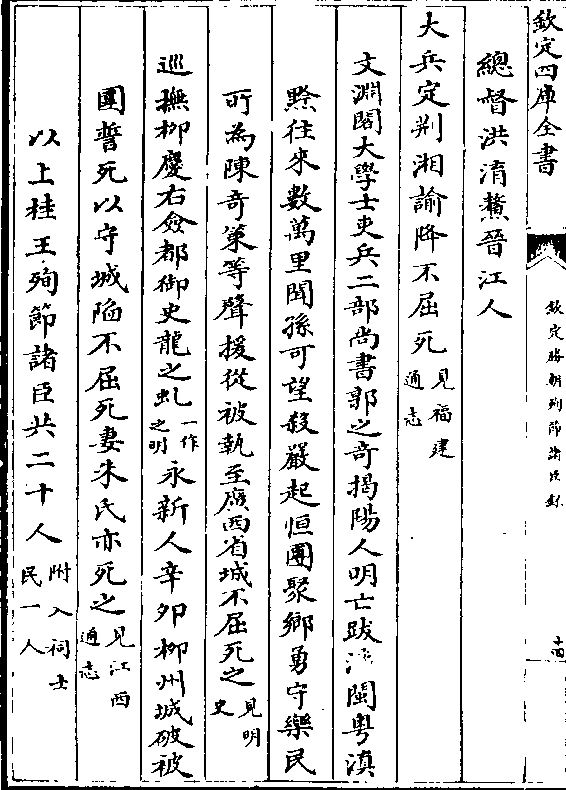 欽定四庫全書
欽定勝朝殉節諸臣錄
十四
總督洪淯鰲晉江人
大兵定荆湘諭降不屈死見福建通志
文淵閣大學士吏兵二部尚書郭之奇揭陽人明亡跋涉閩粤滇
黔往來數萬里聞孫可望殺嚴起恒團聚鄉勇守樂民
所為陳奇策等聲援從被執至廣西省城不屈死之見明史
巡撫柳慶右僉都御史龍之虬一作之明永新人辛卯柳州城破被
圍誓死以守城陷不屈死妻朱氏亦死之見江西通志
以上桂王殉節諸臣共二十人附入祠士民一人